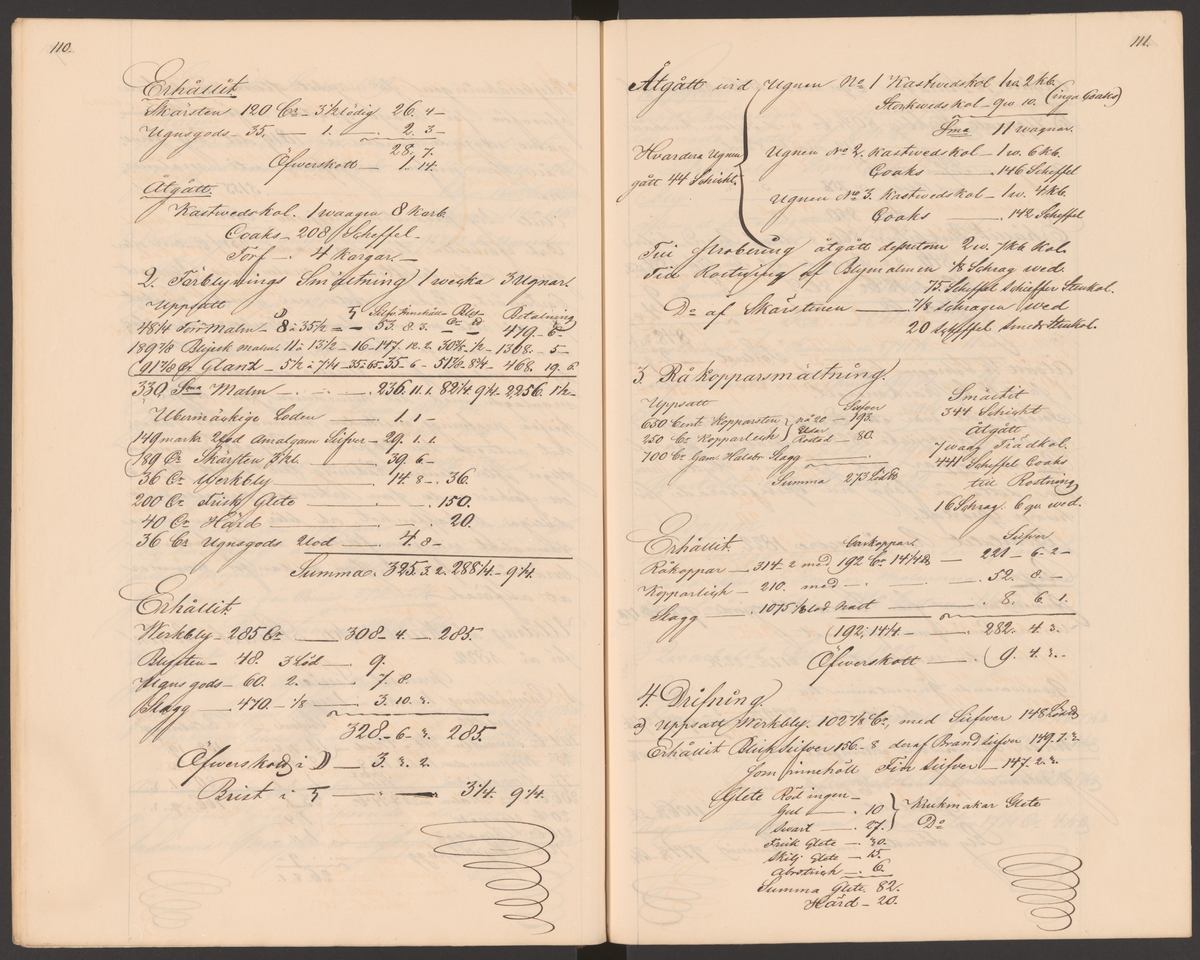 110.
Erhållit
Skärsten 120 Cr 3½ lödig 26. 4 –
Ugnsgods – 35. — 1. — 2. 3 –
28. 7.
Öfverskott — 1. 14.
Åtgått.
Kastvedskol. 1 waagen 8 Korb
Coaks – 208 Scheffel –
Torf – 4 Korgar. –
2. Förblynings Smältning 1 wecka 3 Ugnar.
Uppsatt
Silfv. Innehåller Bly Betalning
48¼ Torr Malm – 8 à 35½ – – 53. 8. 3. – – 479. – 6 –
189⅞ Blyisk Malm. 11 à 13½ – 16 – 147. 12. 2. 30⅝ ½ – 1308. – 5 –
91⅞ Cr Glanz – 5½ à 7¼ 35 à 65 35 – 6 – 51⅝ 8¼ – 468. 19. 6.
330 Sma Malm – . – . – 236. 11. 1. 82¼. 9¼. 2256. 1½ –
Übermäskige Loden — 1. 1 –
149 mark 2 Lod Amalgam Silfver – 29. 1. 1.
189 Cr Skärsten — 39. 6 –
36 Cr Werkbly — 14. 8 – . 36.
200 Cr Frisk Glete — . — . 150.
40 Cr Härd — . — . 20.
36 Cr Ugnsgods 2 lod — 4. 8 –
Summa. 325. 3. 2. 288¼ – 9¼.
Erhållit.
Werkbly – 285 Cr — 308 – 4. – . 285.
Blysten – 48. 3 Löd — 9.
Ugnsgods – 60. 2. — 7. 8.
Slagg — . 470 – ⅛ — 3. 10. 3.
328. – 6 – 3. 285.
Öfverskott i ☽ — 3. 3. 2.
Brist i ♄ — 3¼. 9¼.
111.
Åtgått vid Ugnen No 1 Kastvedskol 1 w. 2 kb.
Storkvedskol – 9 w 10. (inga Coaks)
Sma 11 wagnar.
Hvardera Ugnen Ugnen No 2. Kastvedskol – 1 w. 6 kb.
gått 44 Schicht. Coaks — . 146 Scheffel
Ugnen No 3. Kastvedskol – 1 w. 4 kb.
Coaks — . 142 Scheffel
Till Probering åtgått dessutom 2 w. 7 kb Kol.
Till Rostning af Blymalmen ⅛ Schrag wed.
75 Scheffel Schieffer Stenkol.
Do af Skärstenen — ⅞ Schragen wed
20 Scheffel Smidestenkol.
3. Råkopparsmältning.
Uppsatt Silfver Smältit
650 Cent Kopparsten på 20 – 193. 344 Schicht
250 Cr Kopparlech Rosted – 80. Åtgått
700 Cr Gam. Halsbr Slagg — 7 waag Trädkol.
Summa 273 441 Scheffel Coaks
till Rostning
16 Schrag. 6 qu wed.
Erhållit. Silfver
Råkoppar — 314. 2 med 192 Cr 14¼ — 221 – 6. 2 –
Kopparlech – 210. med – . – . – . 52. 8. –
Slagg — . 1075 ⅛ lod hatt — . 8. 6. 1.
192; 14¼ – — . 282. 4. 3.
Öfverskott — . 9. 4. 3. –
4. Drifning.
a) Uppsatt Werkbly. 102½ Cr, med Silfver 148
Erhållit Blicksilfver 156. – 8 deraf Brandsilfver 149. 7. 3 –
Som innehöll Fin Silfver – 147. 2. 3.
Glete Röd ingen –
Gul — . 10 Krukmakar Glete
Svart — . 27. Do
Frisk Glete – . 30.
Skilj Glete – 15.
Abstrich – . 6.
Summa Glete. 82.
Härd – 20.